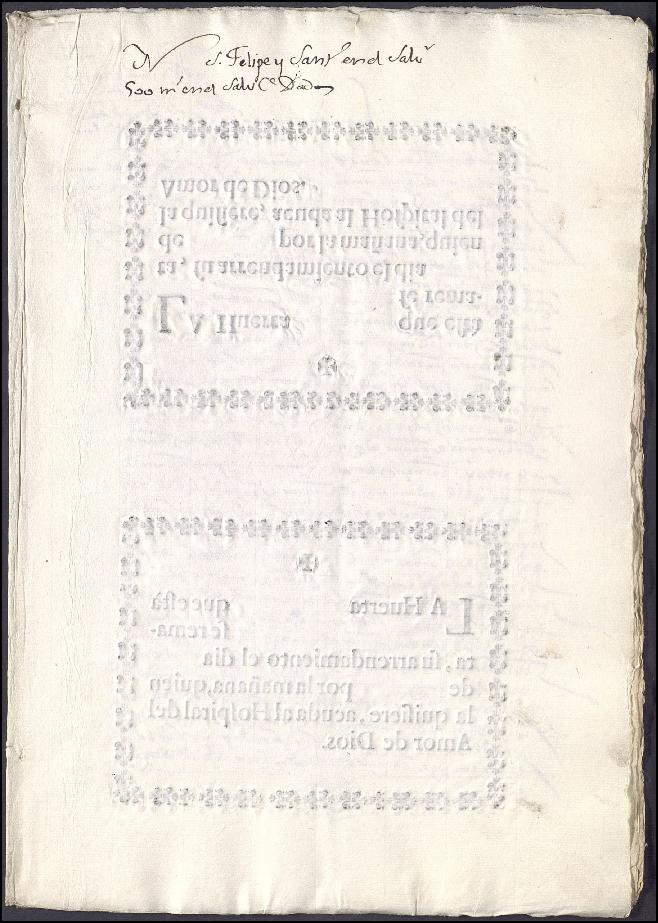 N S. Felipe y Sant en el Salvʳ
500 en el Salvʳ
LA Huerta que eſtà
ſe rema-
ta, ſu arrendamiento el dia
de por la mañana, quien
la quiſiere, acuda al Hoſpital del
Amor de Dios.
LA Huerta que eſtà
ſe rema-
ta, ſu arrendamiento el dia
de por la mañana, quien
la quiſiere, acuda al Hoſpital del
Amor de Dios.